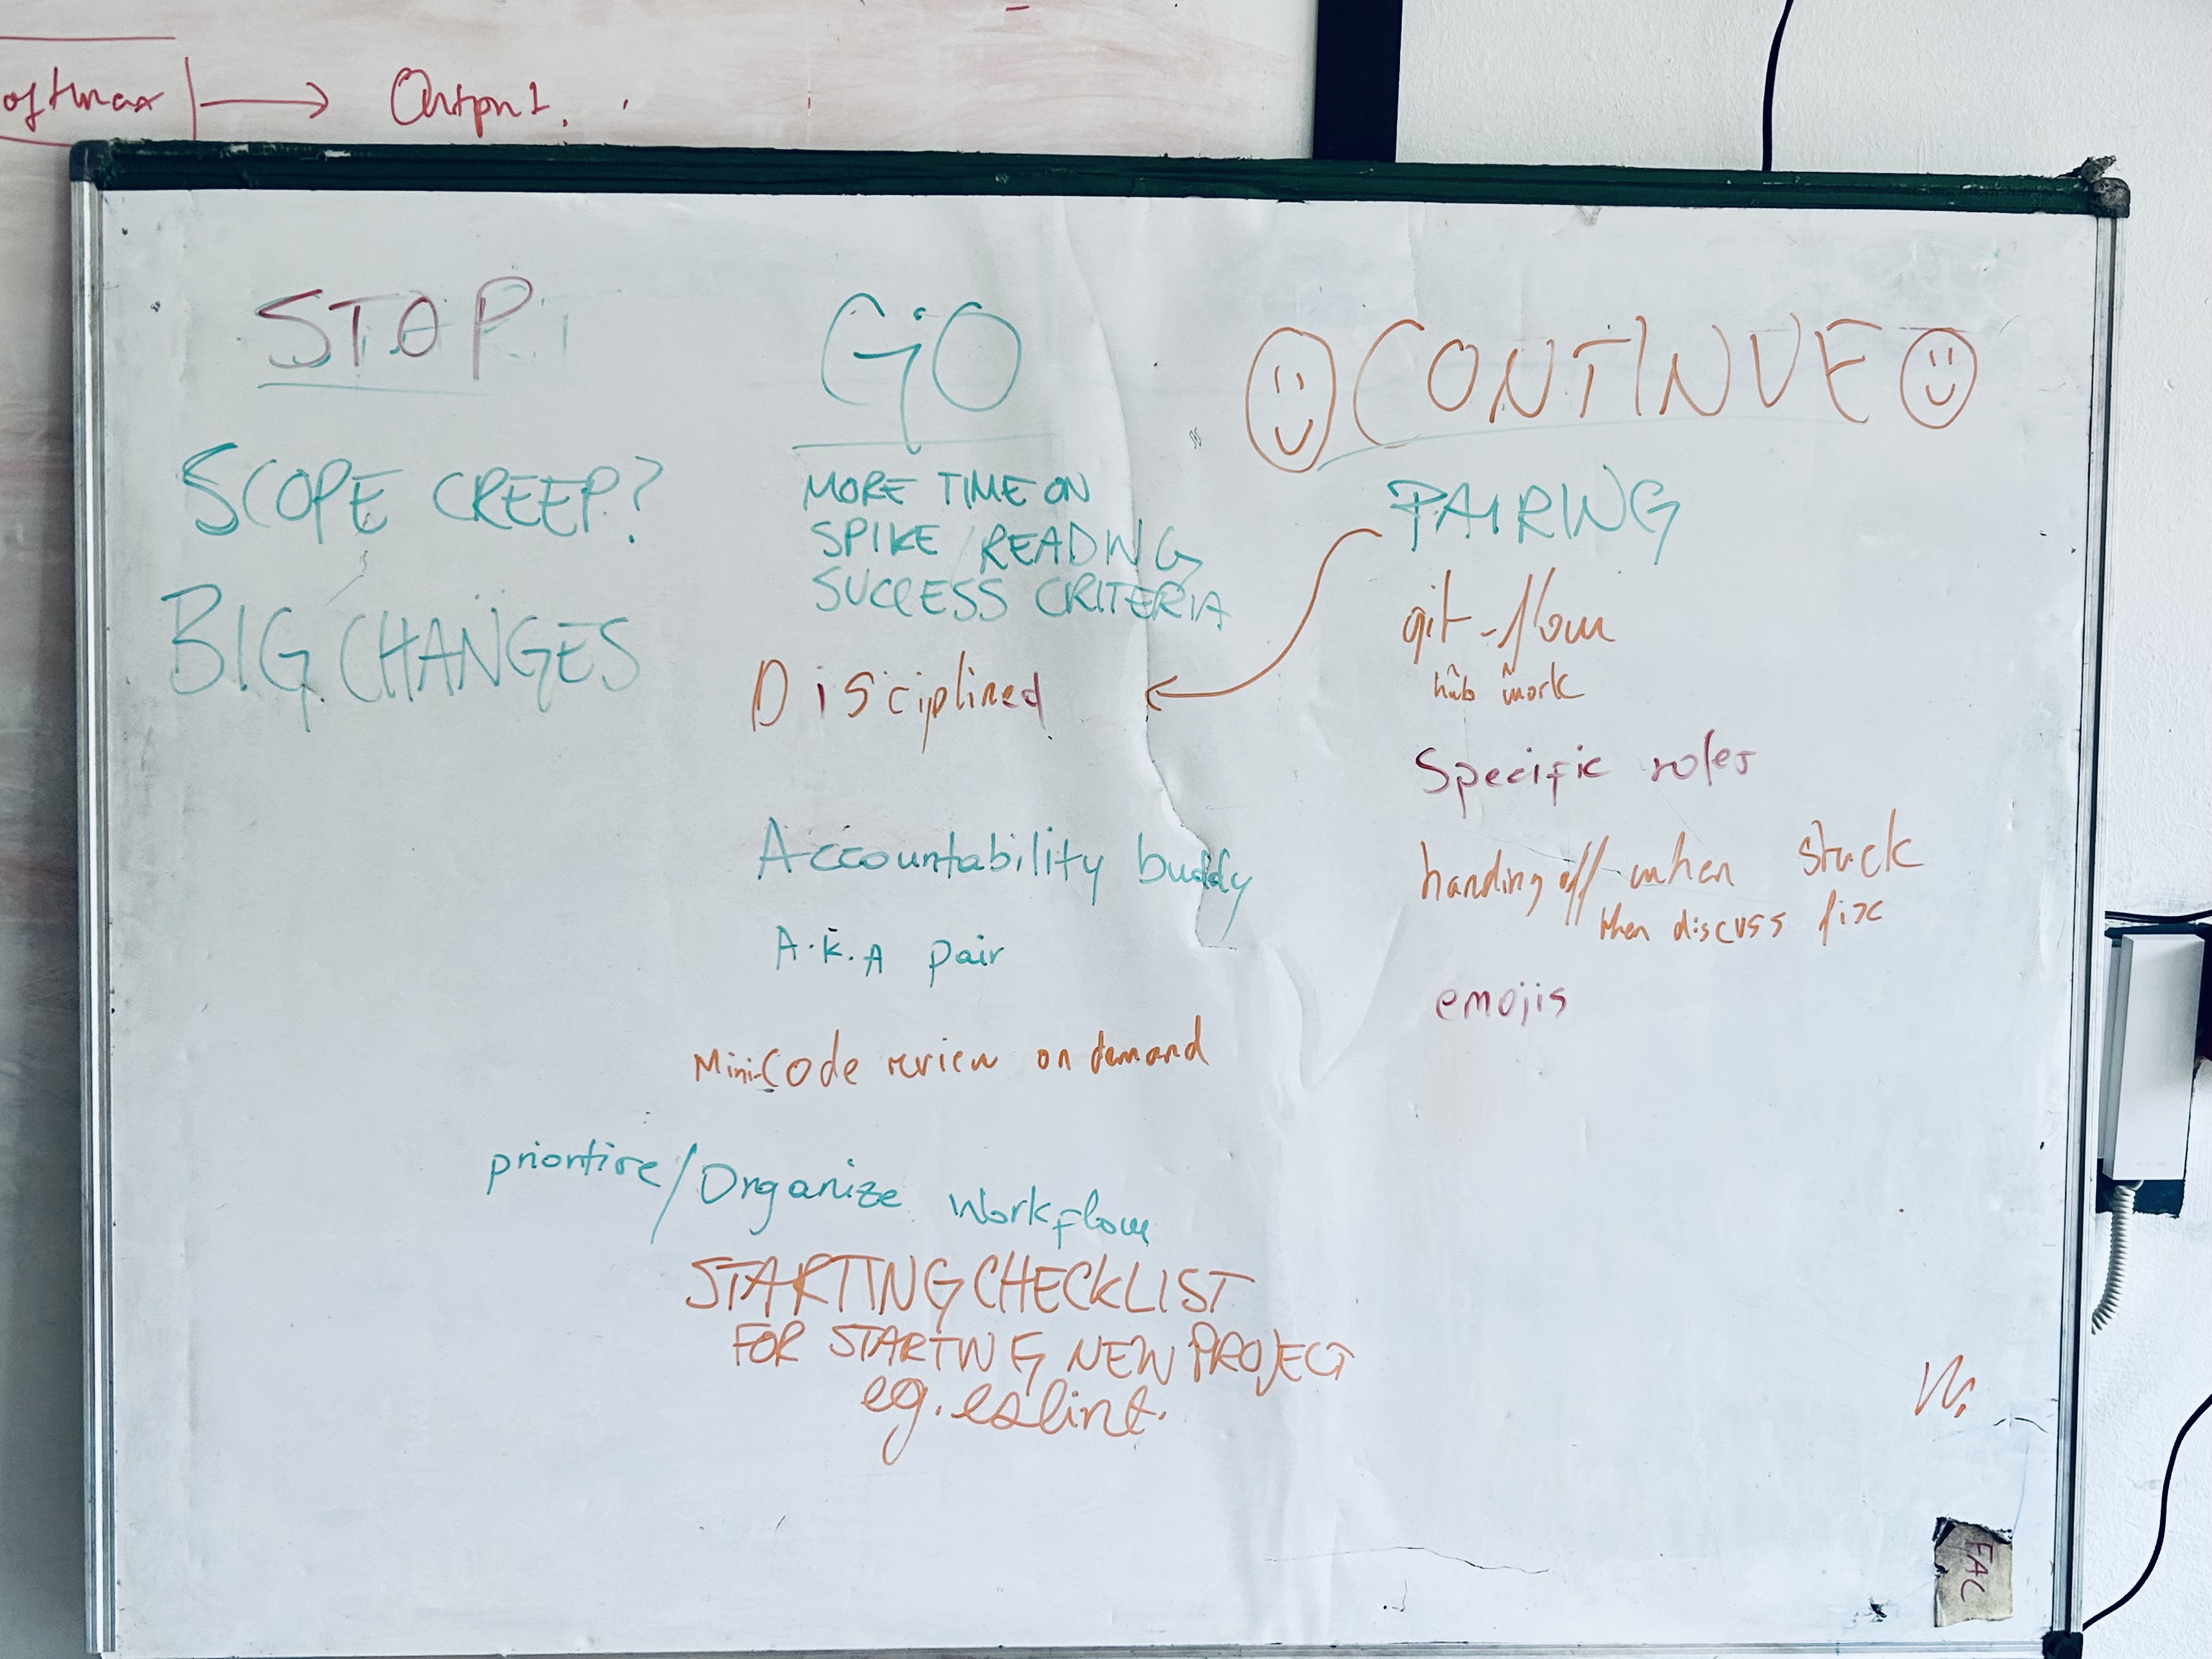 Output.
STOP
SCOPE CREEP?
BIG CHANGES
GO
MORE TIME ON
SPIKE / READING
SUCCESS CRITERIA
Disciplined
Accountability buddy
A.K.A pair
Mini-Code review on demand
prioritise/Organize workflow
STARTING CHECKLIST
FOR STARTING NEW PROJECT
eg. eslint.
CONTINUE
PAIRING
git-flow
hub work
Specific roles
handing off when stuck
then discuss fix
emojis
FAC